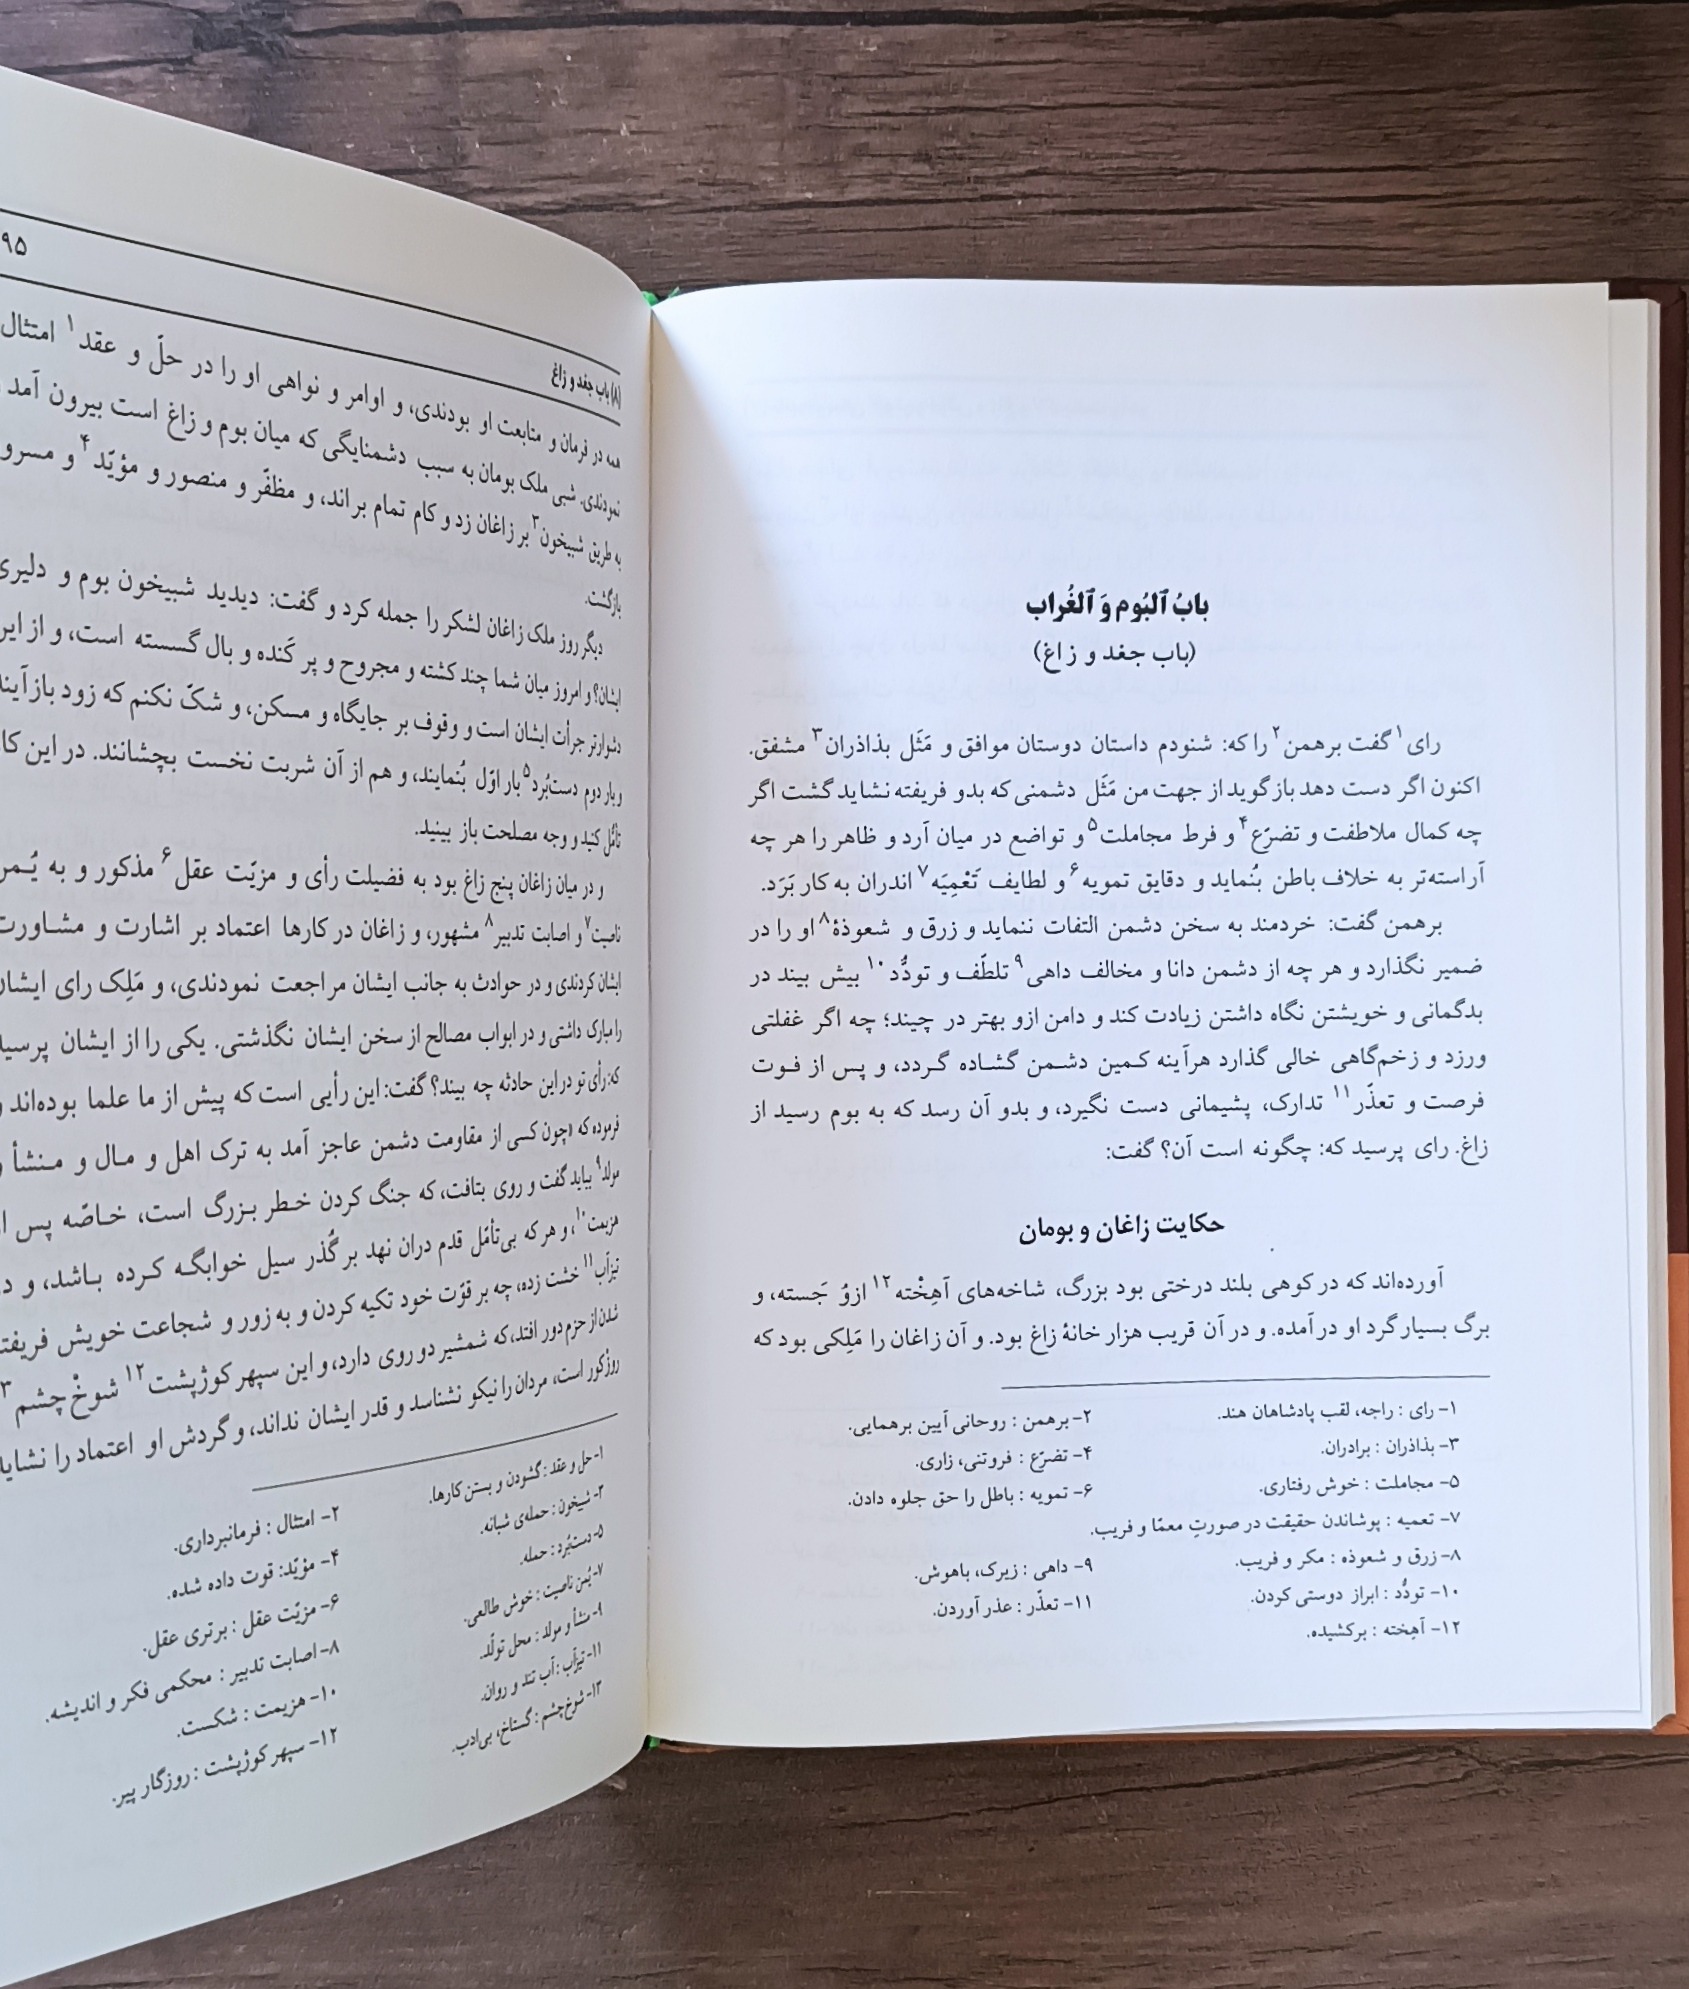 بابُ ٱلبُوم وَ ٱلغُراب
(باب جغد و زاغ)
رای۱ گفت برهمن۲ را که: شنودم داستان دوستان موافق و مَثَل بذاذران۳ مشفق.
اکنون اگر دست دهد بازگوید از جهت من مَثَل دشمنی که بدو فریفته نشاید گشت اگر
چه کمال ملاطفت و تضرّع۴ و فرط مجاملت۵ و تواضع در میان آرد و ظاهر را هر چه
آراسته‌تر به خلاف باطن بنُماید و دقایق تمویه۶ و لطایف تَعْمِیَه۷ اندران به کار بَرَد.
برهمن گفت: خردمند به سخن دشمن التفات ننماید و زرق و شعوذهٔ۸ او را در
ضمیر نگذارد و هر چه از دشمن دانا و مخالف داهی۹ تلطّف و تودُّد۱۰ بیش بیند در
بدگمانی و خویشتن نگاه داشتن زیادت کند و دامن ازو بهتر در چیند؛ چه اگر غفلتی
ورزد و زخم‌گاهی خالی گذارد هرآینه کمین دشمن گشاده گردد، و پس از فوت
فرصت و تعذّر۱۱ تدارک، پشیمانی دست نگیرد، و بدو آن رسد که به بوم رسید از
زاغ. رای پرسید که: چگونه است آن؟ گفت:
حکایت زاغان و بومان
آورده‌اند که در کوهی بلند درختی بود بزرگ، شاخه‌های آهِخْته۱۲ ازوُ جَسته، و
برگ بسیار گرد او درآمده. و در آن قریب هزار خانهٔ زاغ بود. و آن زاغان را مَلِکی بود که
۱- رای : راجه، لقب پادشاهان هند. ۲- برهمن : روحانی آیین برهمایی.
۳- بذاذران : برادران. ۴- تضرّع : فروتنی، زاری.
۵- مجاملت : خوش رفتاری. ۶- تمویه : باطل را حق جلوه دادن.
۷- تعمیه : پوشاندن حقیقت در صورتِ معمّا و فریب.
۸- زرق و شعوذه : مکر و فریب. ۹- داهی : زیرک، باهوش.
۱۰- تودُّد : ابراز دوستی کردن. ۱۱- تعذّر : عذر آوردن.
۱۲- آهِخته : برکشیده.
(۸) باب جغد و زاغ ۹۵
همه در فرمان و متابعت او بودندی، و اوامر و نواهی او را در حلّ و عقد۱ امتثال
نمودندی. شبی ملک بومان به سبب دشمنایگی که میان بوم و زاغ است بیرون آمد
به طریق شبیخون۳ بر زاغان زد و کام تمام براند، و مظفّر و منصور و مؤیّد۴ و مسرو
بازگشت.
دیگر روز ملک زاغان لشکر را جمله کرد و گفت: دیدید شبیخون بوم و دلیری
ایشان؟ و امروز میان شما چند کشته و مجروح و پر کَنده و بال گسسته است، و از این
دشوارتر جرأت ایشان است و وقوف بر جایگاه و مسکن، و شکّ نکنم که زود بازآیند
و بار دوم دست‌بُرد۵ بار اوّل بُنمایند، و هم از آن شربت نخست بچشانند. در این کا
تأمُّل کنید و وجه مصلحت باز بینید.
و در میان زاغان پنج زاغ بود به فضیلت رأی و مزیّت عقل۶ مذکور و به یُـمن
ناصیت۷ و اصابت تدبیر۸ مشهور، و زاغان در کارها اعتماد بر اشارت و مشـاورت
ایشان کردندی و در حوادث به جانب ایشان مراجعت نمودندی، و مَلِک رای ایشان
را مبارک داشتی و در ابواب مصالح از سخن ایشان نگذشتی. یکی را از ایشان پرسید
که: رأی تو در این حادثه چه بیند؟ گفت: این رأیی است که پیش از ما علما بوده‌اند و
فرموده که «چون کسی از مقاومت دشمن عاجز آمد به ترک اهل و مـال و مـنشأ و
مولد۹ بباید گفت و روی بتافت، که جنگ کردن خـطر بـزرگ است، خـاصّه پس از
هزیمت۱۰، و هر که بی‌تأمّل قدم دران نهد بر گُذر سیل خوابگـه کـرده بـاشد، و د
تیزآب۱۱ خشت زده، چه بر قوّت خود تکیه کردن و به زور و شجاعت خویش فریفته
شدن از حزم دور افتد، که شمشیر دو روی دارد، و این سپهر کوژپشت۱۲ شوخْ چشم۳
روزْکور است، مردان را نیکو نشناسد و قدر ایشان نداند، و گردش او اعتماد را نشاید
۱- حل و عقد : گشودن و بستن کارها. ۲- امتثال : فرمانبرداری.
۳- شبیخون : حمله‌ی شبانه. ۴- مؤیّد: قوت داده شده.
۵- دست‌بُرد : حمله. ۶- مزیّت عقل : برتری عقل.
۷- یُمن ناصیت : خوش طالعی. ۸- اصابت تدبیر : محکمی فکر و اندیشه.
۹- منشأ و مولد : محل تولّد. ۱۰- هزیمت : شکست.
۱۱- تیزآب : آب تند و روان. ۱۲- سپهر کوژپشت : روزگار پیر.
۱۳- شوخ‌چشم : گستاخ، بی‌ادب.